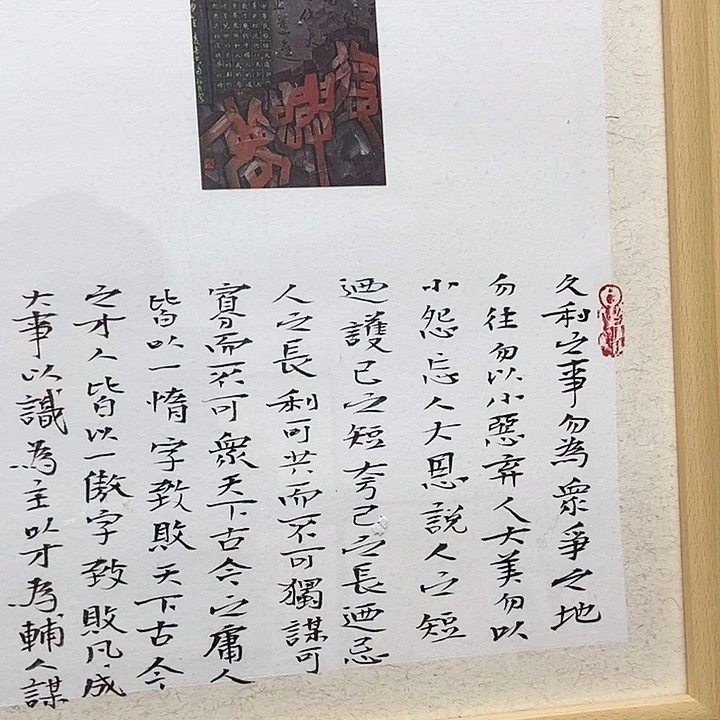 久利之事勿為衆爭之地
勿往勿以小惡弃人大美勿以
小怨忘人大恩說人之短
迺護己之短夸己之長迺忌
人之長利可共而不可獨謀可
寡而不可衆天下古今之庸人
皆以一惰字致敗天下古今
之才人皆以一傲字致敗凡成
大事以識為主以才為輔人謀